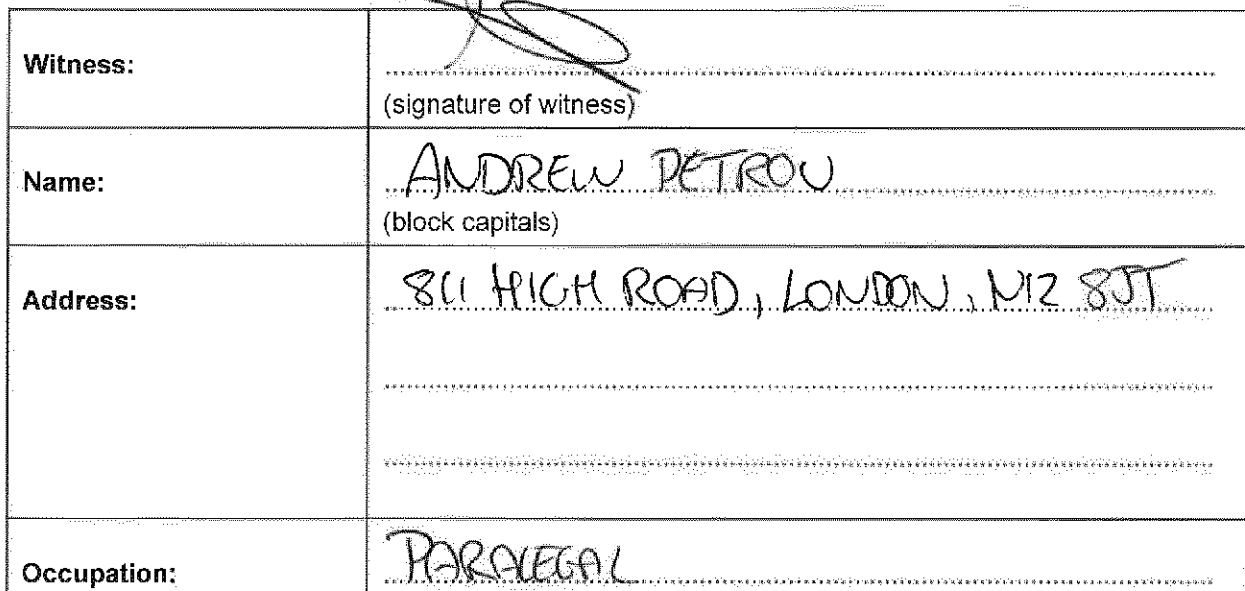 Witness:
(signature of witness)
Name:
ANDREW PETROU
(block capitals)
Address:
811 HIGH ROAD, LONDON, N12 8JT
Occupation:
PARALEGAL